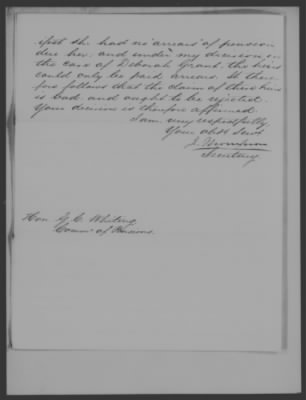 ifst she had no arrears of pension
due her, and under my decision in
the case of Deborah Grant the heirs
could only be paid arrears. It there-
fore follows that the claim of these heirs
is bad and ought to be rejected.
Your decision is therefore affirmed.
I am very respectfully
Your obdt Servt
J. Thompson
Secretary
Hon G. C. Whiting
Commr of Pensions.